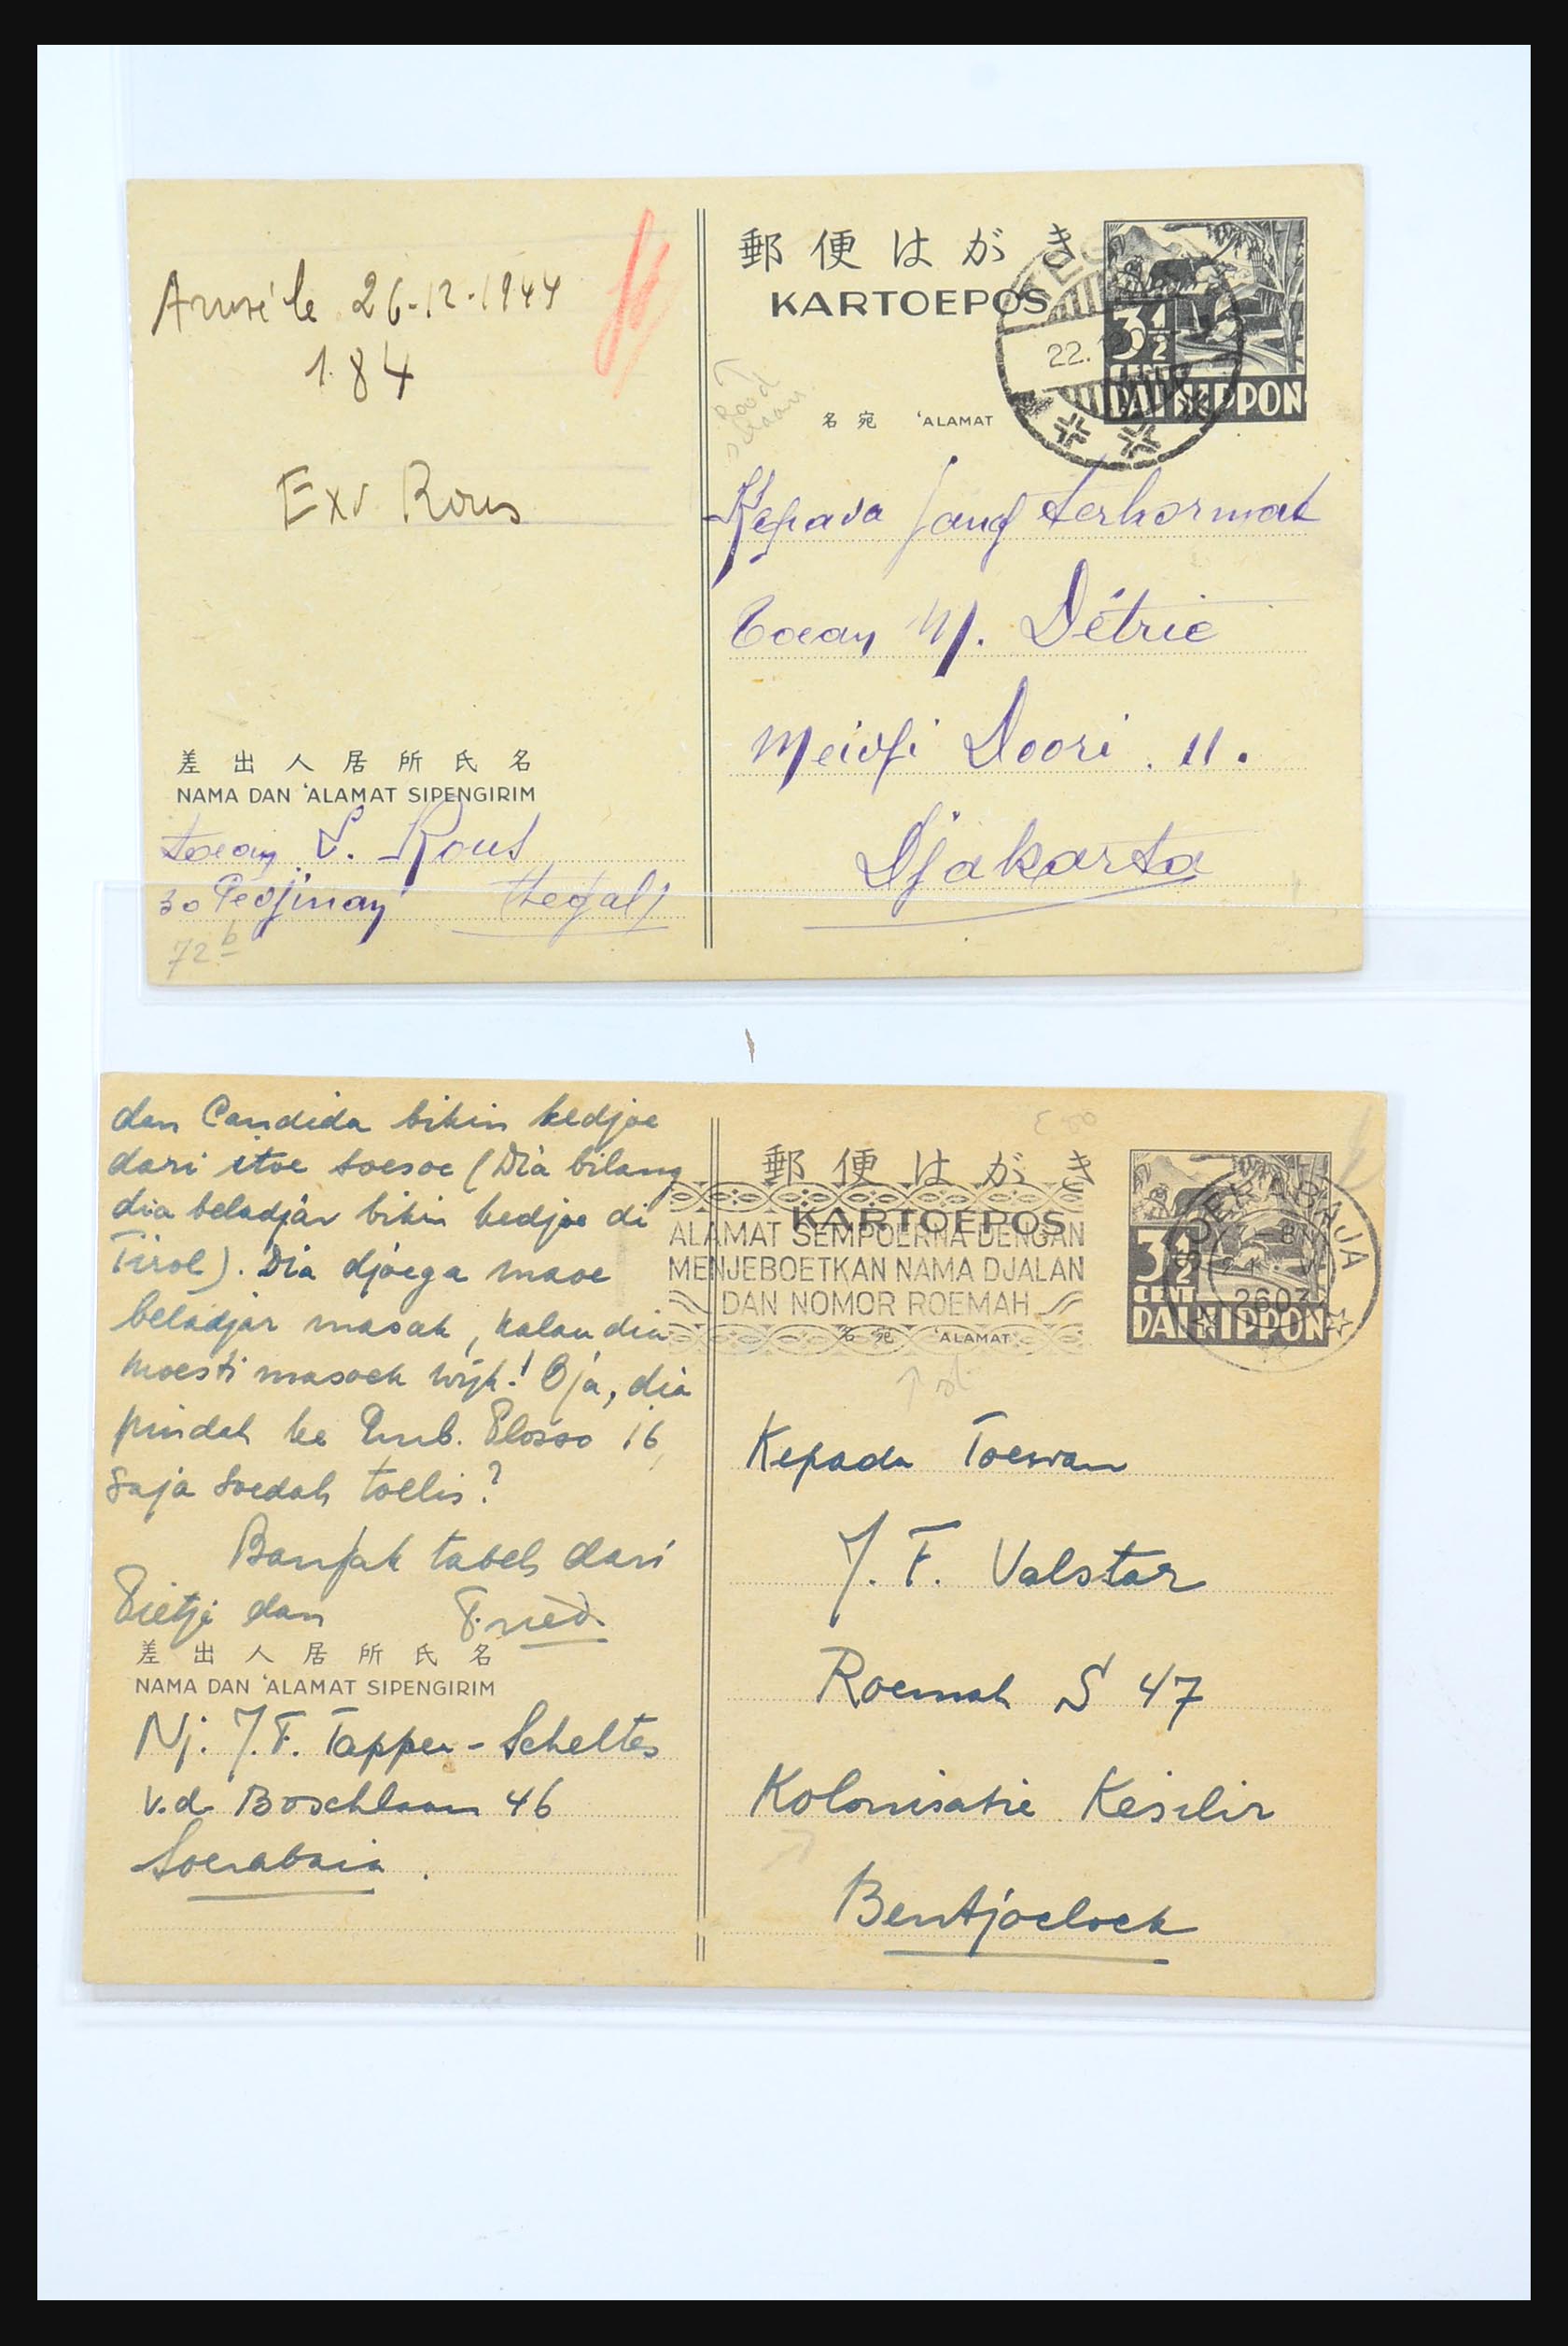 Arrivé le 26-12-1944
184
Exp Rous
差出人居所氏名
NAMA DAN 'ALAMAT SIPENGIRIM
toean V. Rous
30 Pedjinan (tegal)
72 b
郵便はがき
KARTOEPOS
22.
3½
CENT
DAI NIPPON
名宛 'ALAMAT
Kepada jang terhormat
Toean M. Détrie
Meidji Doori. 11.
Djakarta
dan Candida bikin kedjoe
dari itoe soesoe (Dia bilang
dia beladjar bikin kedjoe di
Tirol). Dia djoega maoe
beladjar masak, kalau dia
moesti masoek wijk! Oja, dia
pindah ke Emb. Plosso 16,
saja soedah toelis?
Banjak tabeh dari
Pietje dan Fried.
差出人居所氏名
NAMA DAN 'ALAMAT SIPENGIRIM
Nj. J.F. Tappen-Scheltes
v.d. Boschlaan 46
Soerabaia.
郵便はがき
KARTOEPOS
ALAMAT SEMPOERNA DENGAN
MENJEBOETKAN NAMA DJALAN
DAN NOMOR ROEMAH
SOERABAJA
2603
3½
CENT
DAI NIPPON
名宛 'ALAMAT
Kepada Toewan
J. F. Valstar
Roemah S 47
Kolonisatie Kesilir
Bentjoeloek